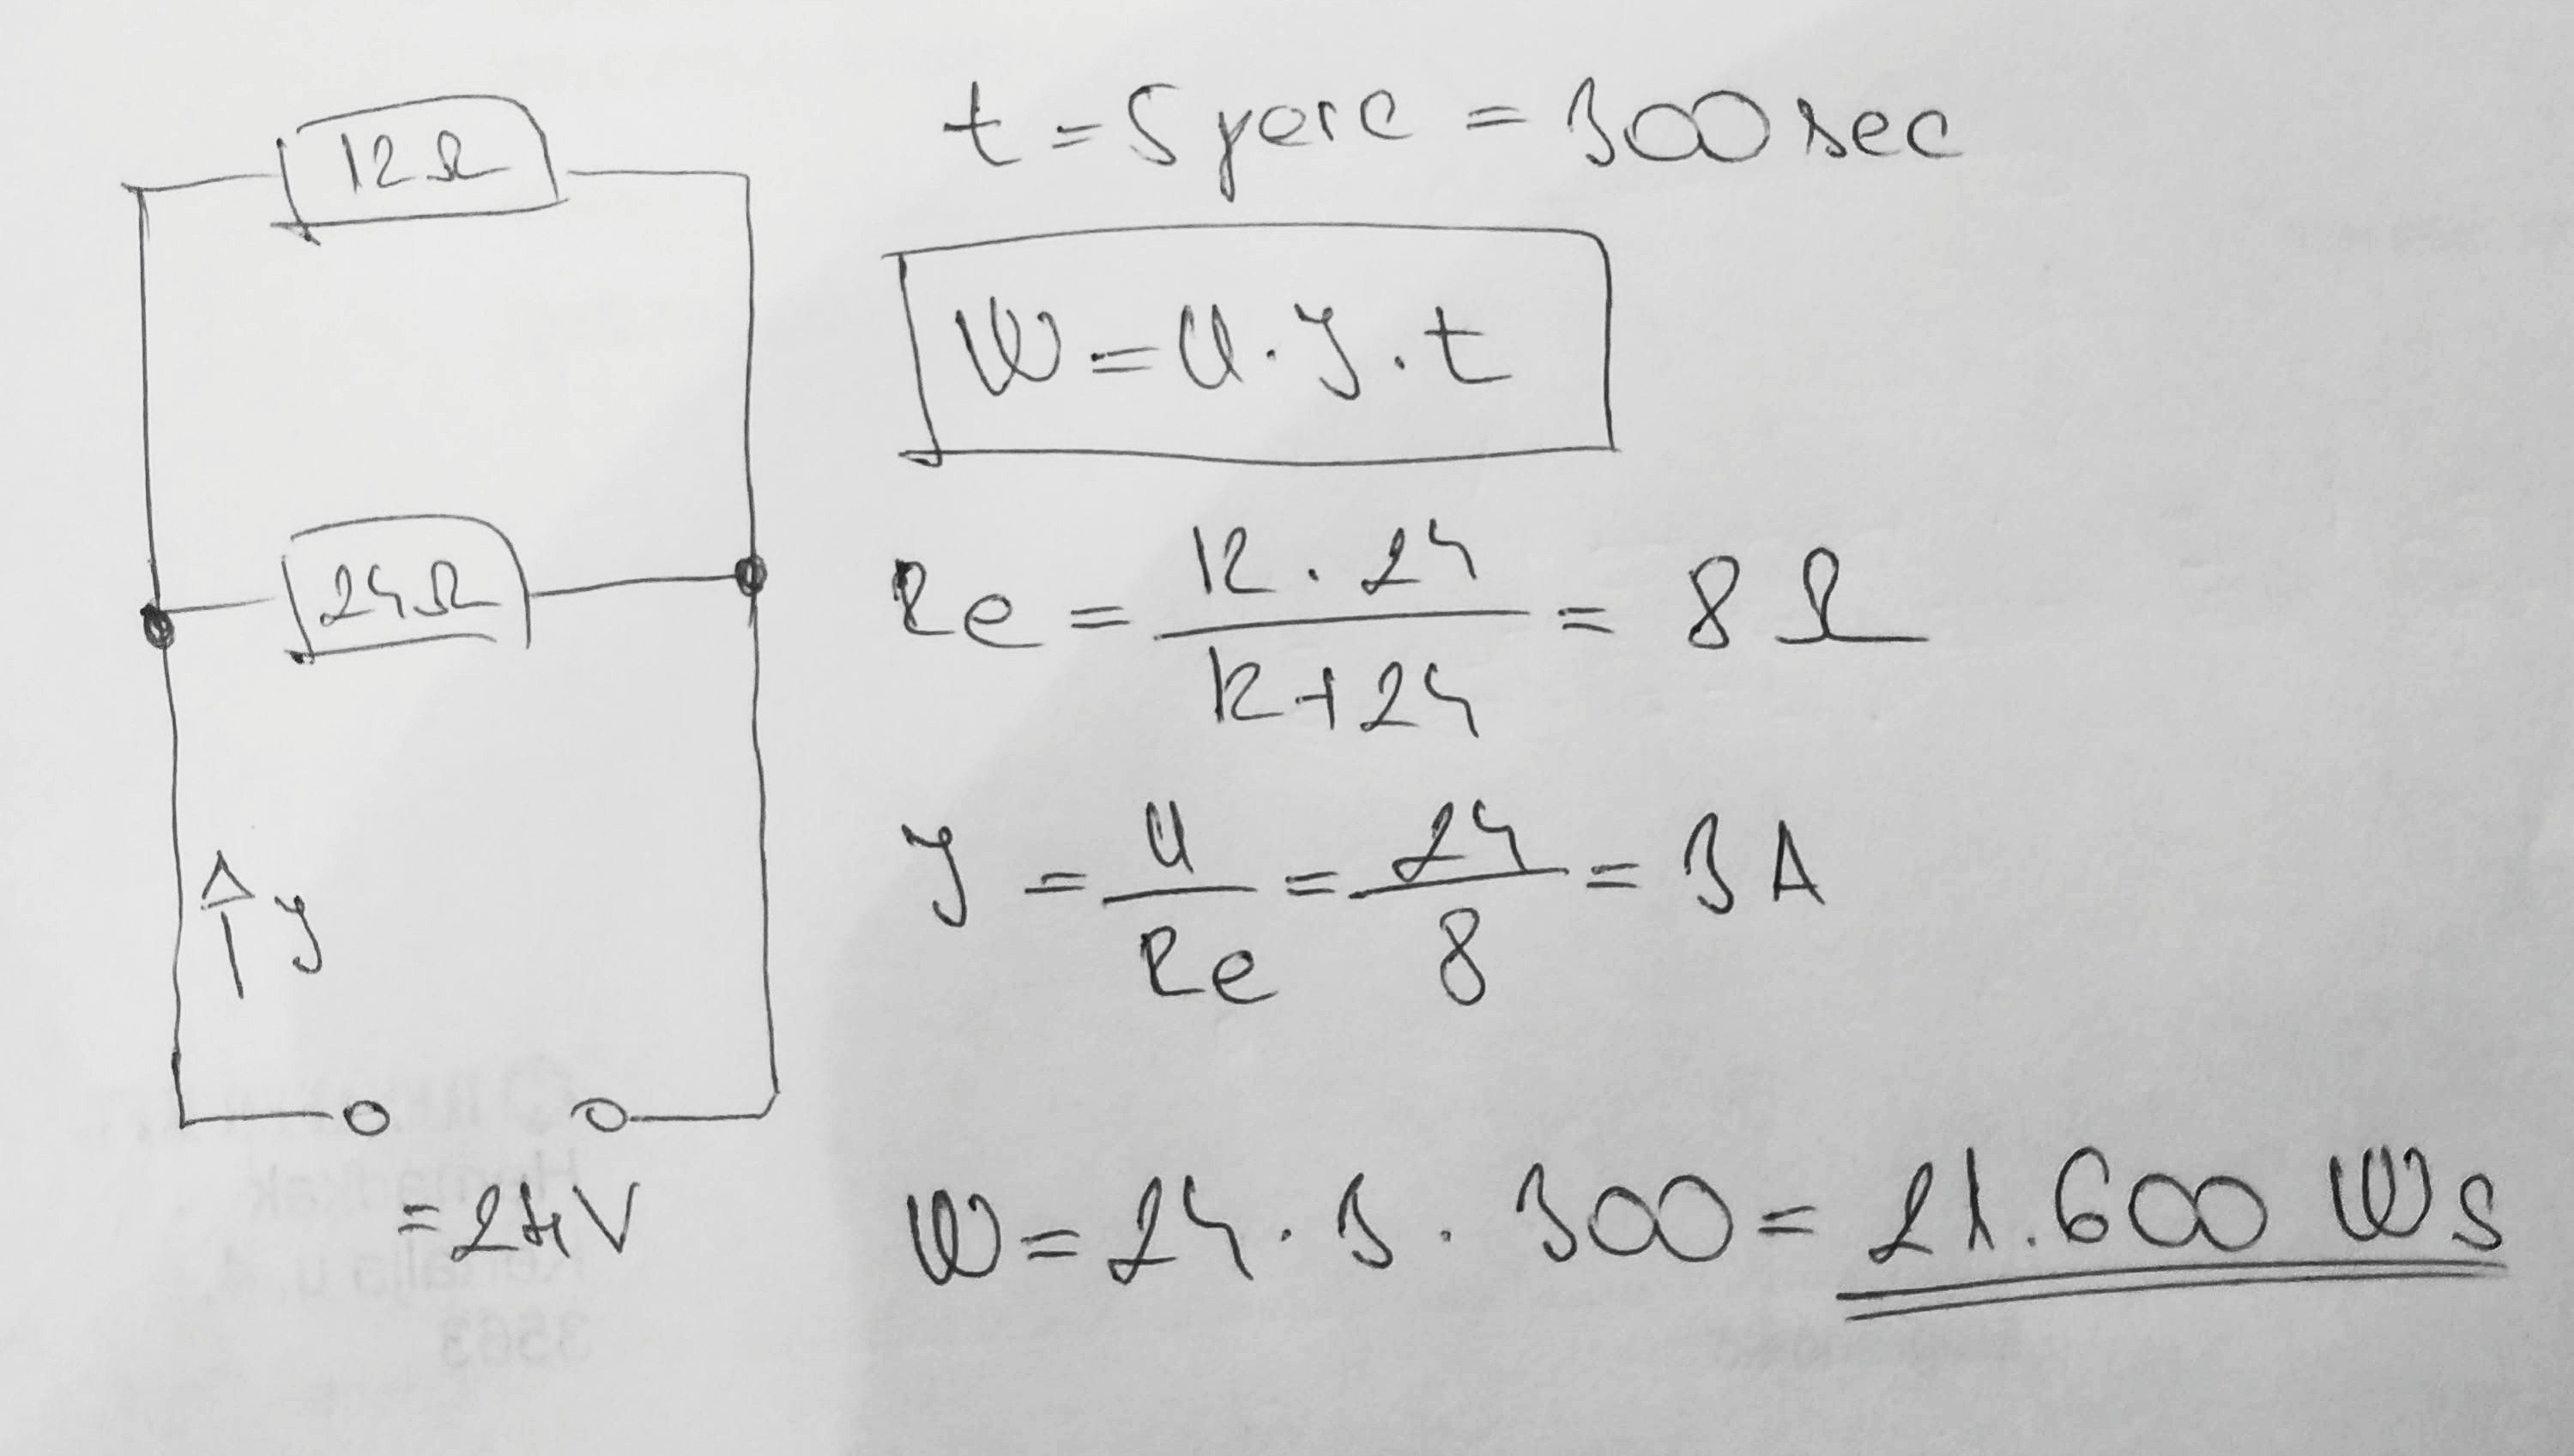 12Ω
24Ω
J
=24V
t=5 perc = 300 sec
W=U·J·t
Re = 12·24 / 12+24 = 8Ω
J = U / Re = 24 / 8 = 3A
W=24·3·300= 21.600 Ws
3563